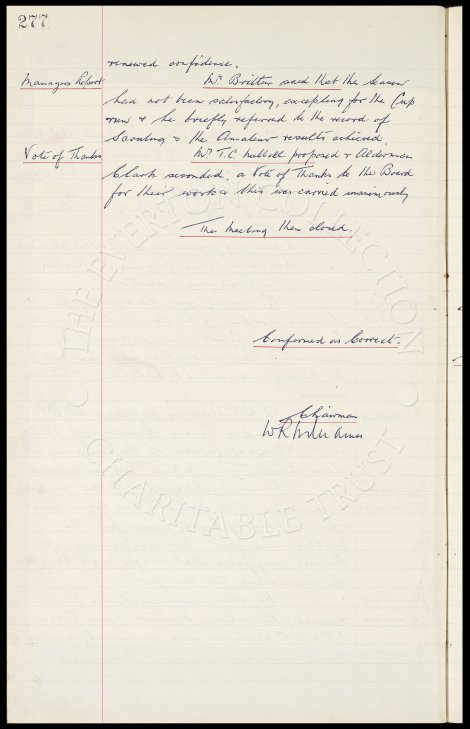 277
renewed confidence.
Managers Report
Mr. Britton said that the season
had not been satisfactory, excepting for the Cup
run & he briefly referred to the record of
Scouting & the Amateur results achieved.
Vote of Thanks
Mr. T.C. Nuttall proposed & Alderman
Clark seconded, a Vote of Thanks to the Board
for their work & this was carried unanimously
The Meeting then closed.
Confirmed as Correct.
Chairman
W R Williams
THE EVERTON COLLECTION
CHARITABLE TRUST